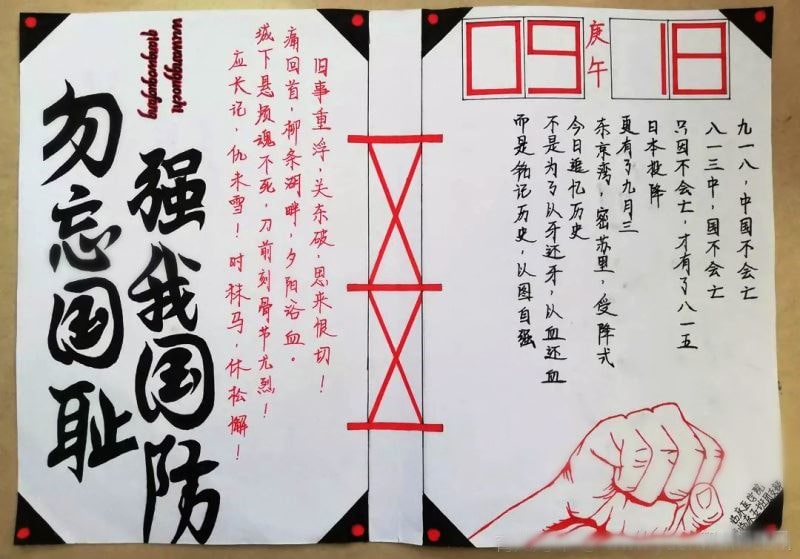 勿忘国耻
强我国防
wuwangguochi
qiangwoguofang
旧事重浮，关东破，思来恨切！
痛回首，柳条湖畔，夕阳浴血。
城下悬颅魂不死，刀前刻骨节尤烈！
应长记，仇未雪！时秣马，休松懈！
09 庚午 18
九一八，中国不会亡
八一三中，国不会亡
只因不会亡，才有了八一五
日本投降
更有了九月三
东京湾，密苏里，受降式
今日追忆历史
不是为了以牙还牙，以血还血
而是铭记历史，以图自强